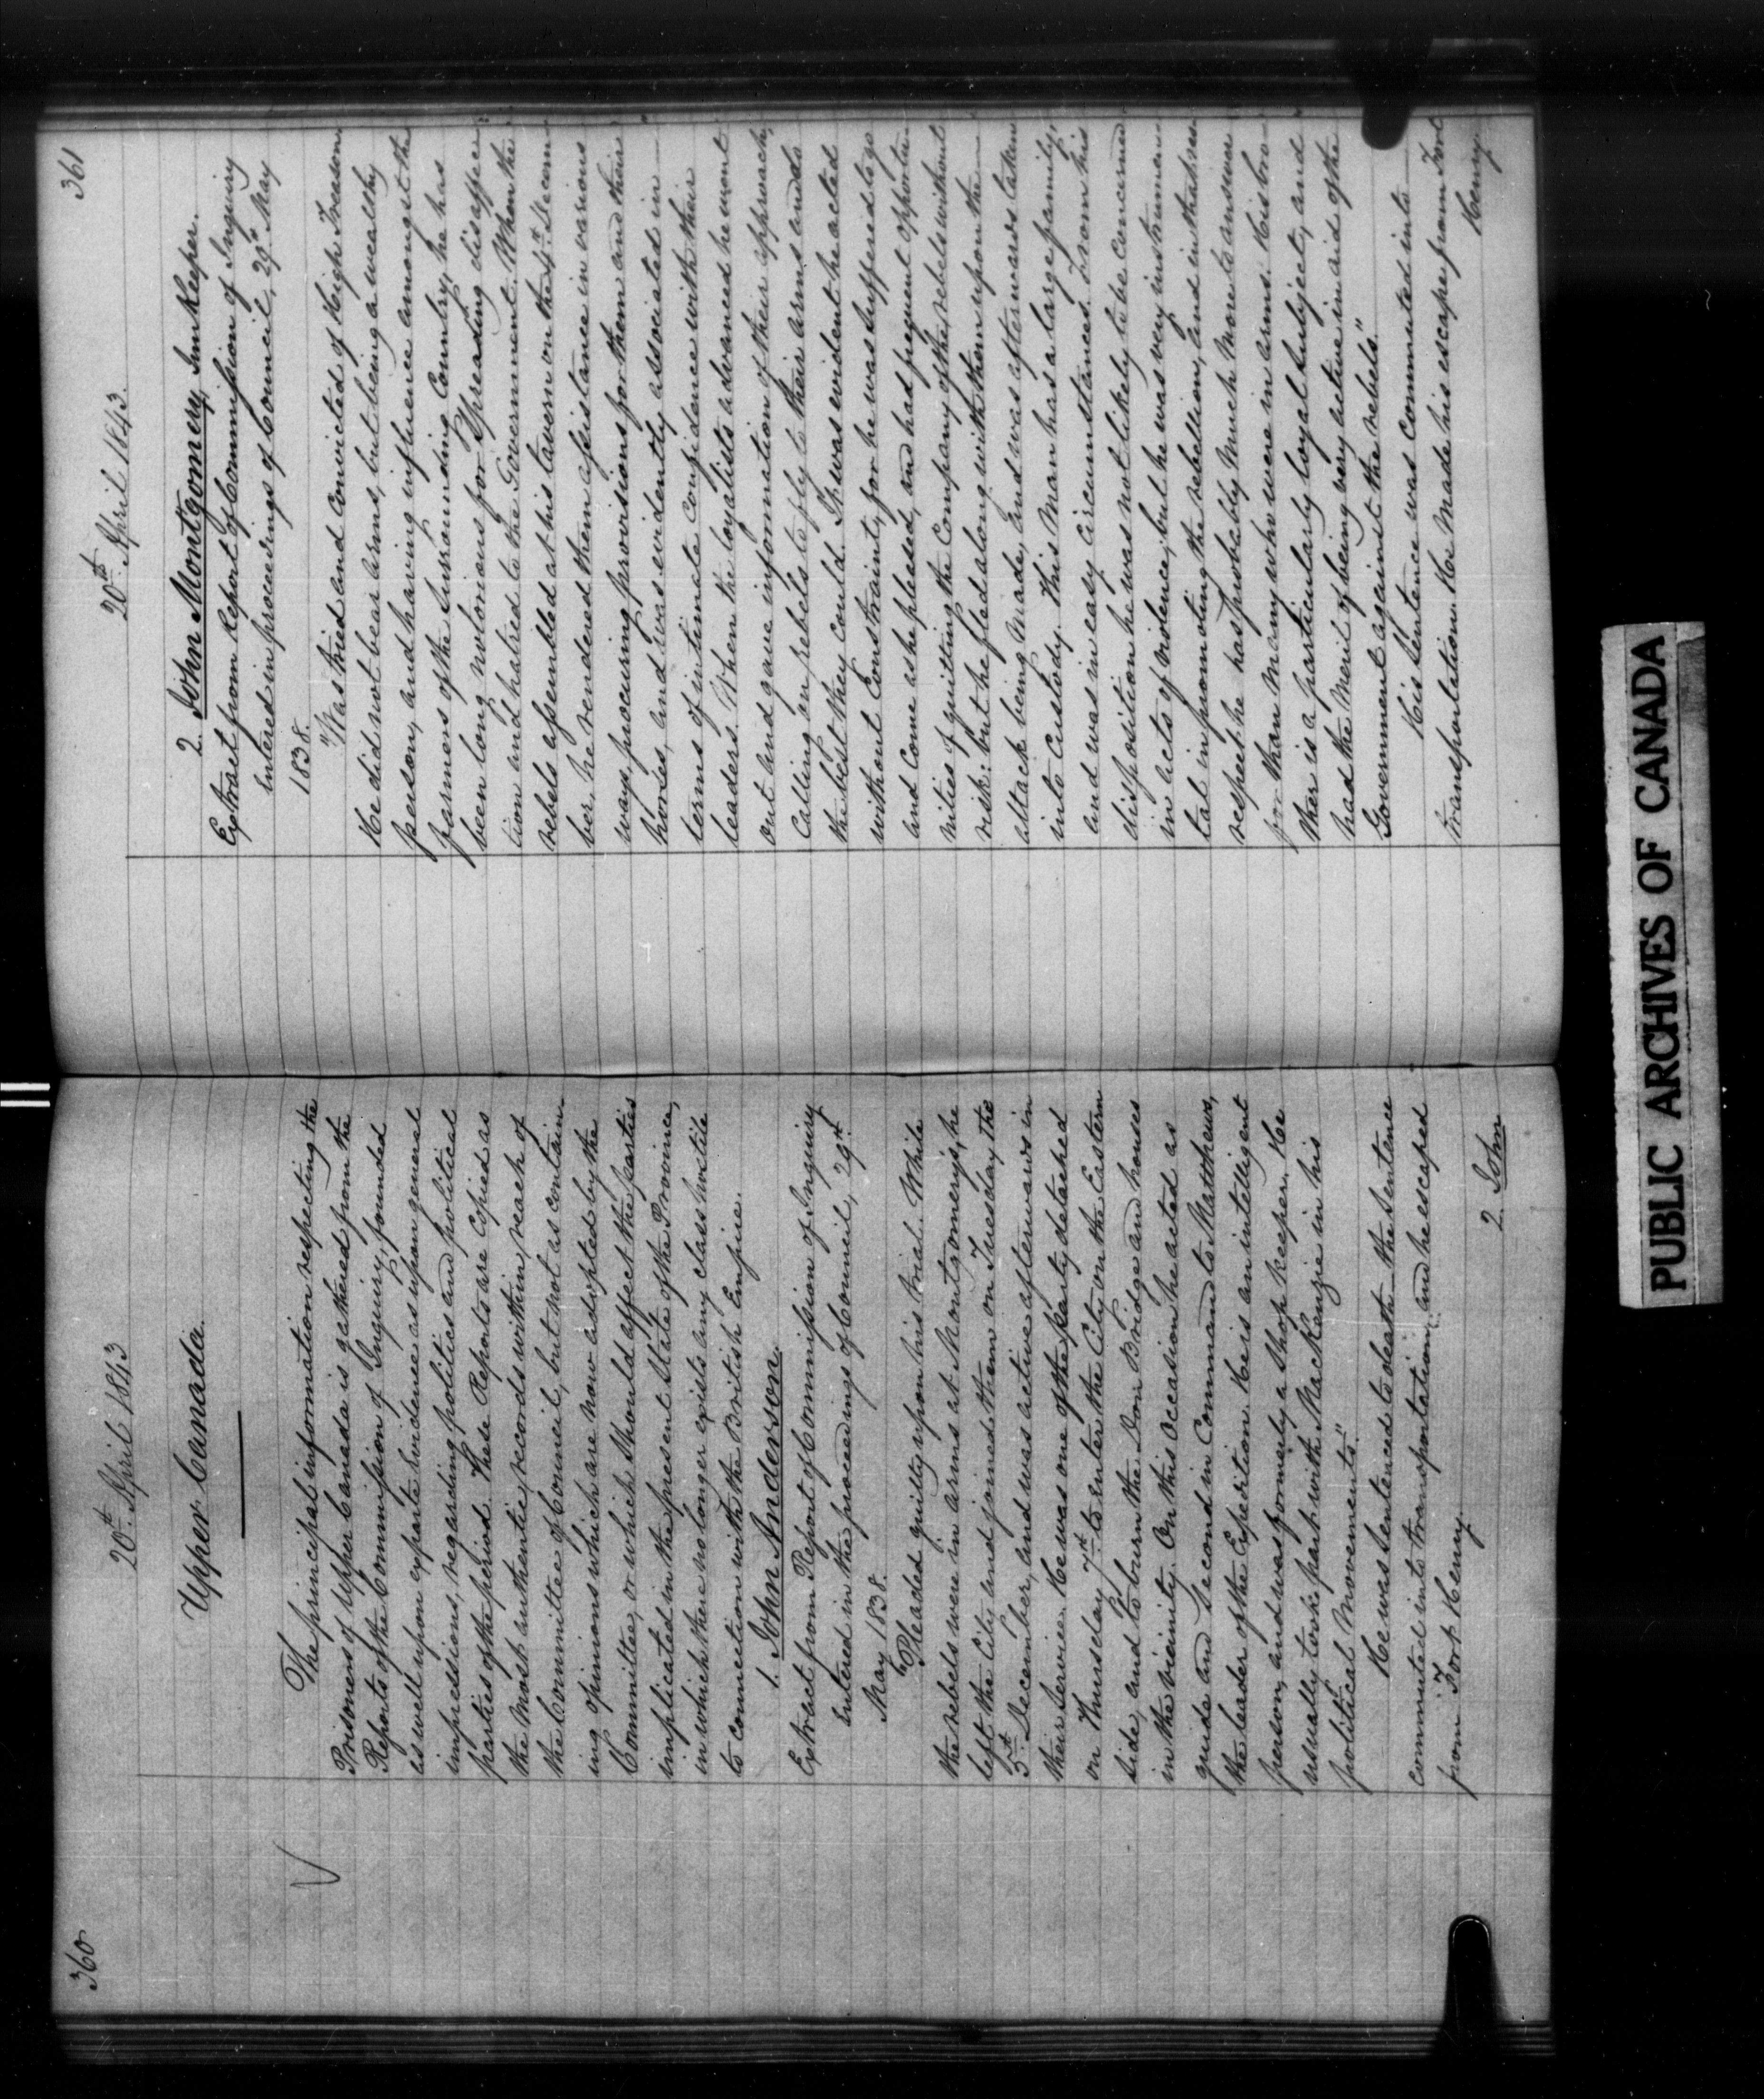 360
20th April 1843
Upper Canada.
The principal information respecting the
Prisoners of Upper Canada is gathered from the
Reports of the Commission of Inquiry, founded
as well upon exparte evidence as upon general
impressions, regarding politics and political
parties of the period. These Reports are copied as
the most authentic, records within reach of
the Committee of Council, but not as contain-
ing opinions which are now adopted by the
Committee, or which should affect the parties
implicated in the present state of the Province,
in which there no longer exists any class hostile
to connection with the British Empire.
1. John Anderson.
Extract from Report of Commission of Inquiry
entered in the proceedings of Council, 29th
May 1838.
"Pleaded guilty upon his trial. While
the rebels were in arms at Montgomery's, he
left the City and joined them on Tuesday the
5th December, and was active afterwards in
their service. He was one of the party detached
on Thursday 7th to enter the City on the Eastern
side, and to burn the Don Bridge and houses
in the vicinity. On this occasion he acted as
guide and second in Command to Matthews,
the leader of the Expedition. He is an intelligent
person, and was formerly a Shop keeper. He
usually took part with MacKenzie in his
political Movements."
He was sentenced to death – the sentence
commuted into transportation, and he escaped
from Fort Henry.
2. John
361
20th April 1843.
2. John Montgomery, Innkeeper.
Extract from Report of Commission of Inquiry
entered in proceedings of Council, 29th May
1838.
"Was tried and convicted of High Treason
He did not bear arms, but being a wealthy
person, and having influence amongst the
farmers of the surrounding Country, he has
been long notorious for spreading disaffec-
tion and hatred to the Government. When the
rebels assembled at his tavern on the 4th Decem-
ber, he rendered them assistance in various
ways, procuring provisions for them and their
horses, and was evidently associated in
terms of intimate confidence with their
leaders. When the loyalists advanced he went
out and gave information of their approach,
Calling on rebels to fly to their arms and do
the best they could. It was evident he acted
without Constraint, for he was suffered to go
and come as he pleased, and had frequent opportu-
nities of quitting the Company of the rebels without
risk: but he fled along with them upon the
attack being made, and was afterwards taken
into custody. This man has a large family,
and was in easy circumstances. From his
disposition he was not likely to be concerned
in acts of violence, but he was very instrumen-
tal in promoting the rebellion, and in that res-
respect he has probably much more to answer
for than many who were in arms. His bro-
ther is a particularly loyal subject, and
had the Merit of being very active in aid of the
Government against the rebels."
His sentence was commuted into
transportation. He made his escape from Fort
Henry.
PUBLIC ARCHIVES OF CANADA